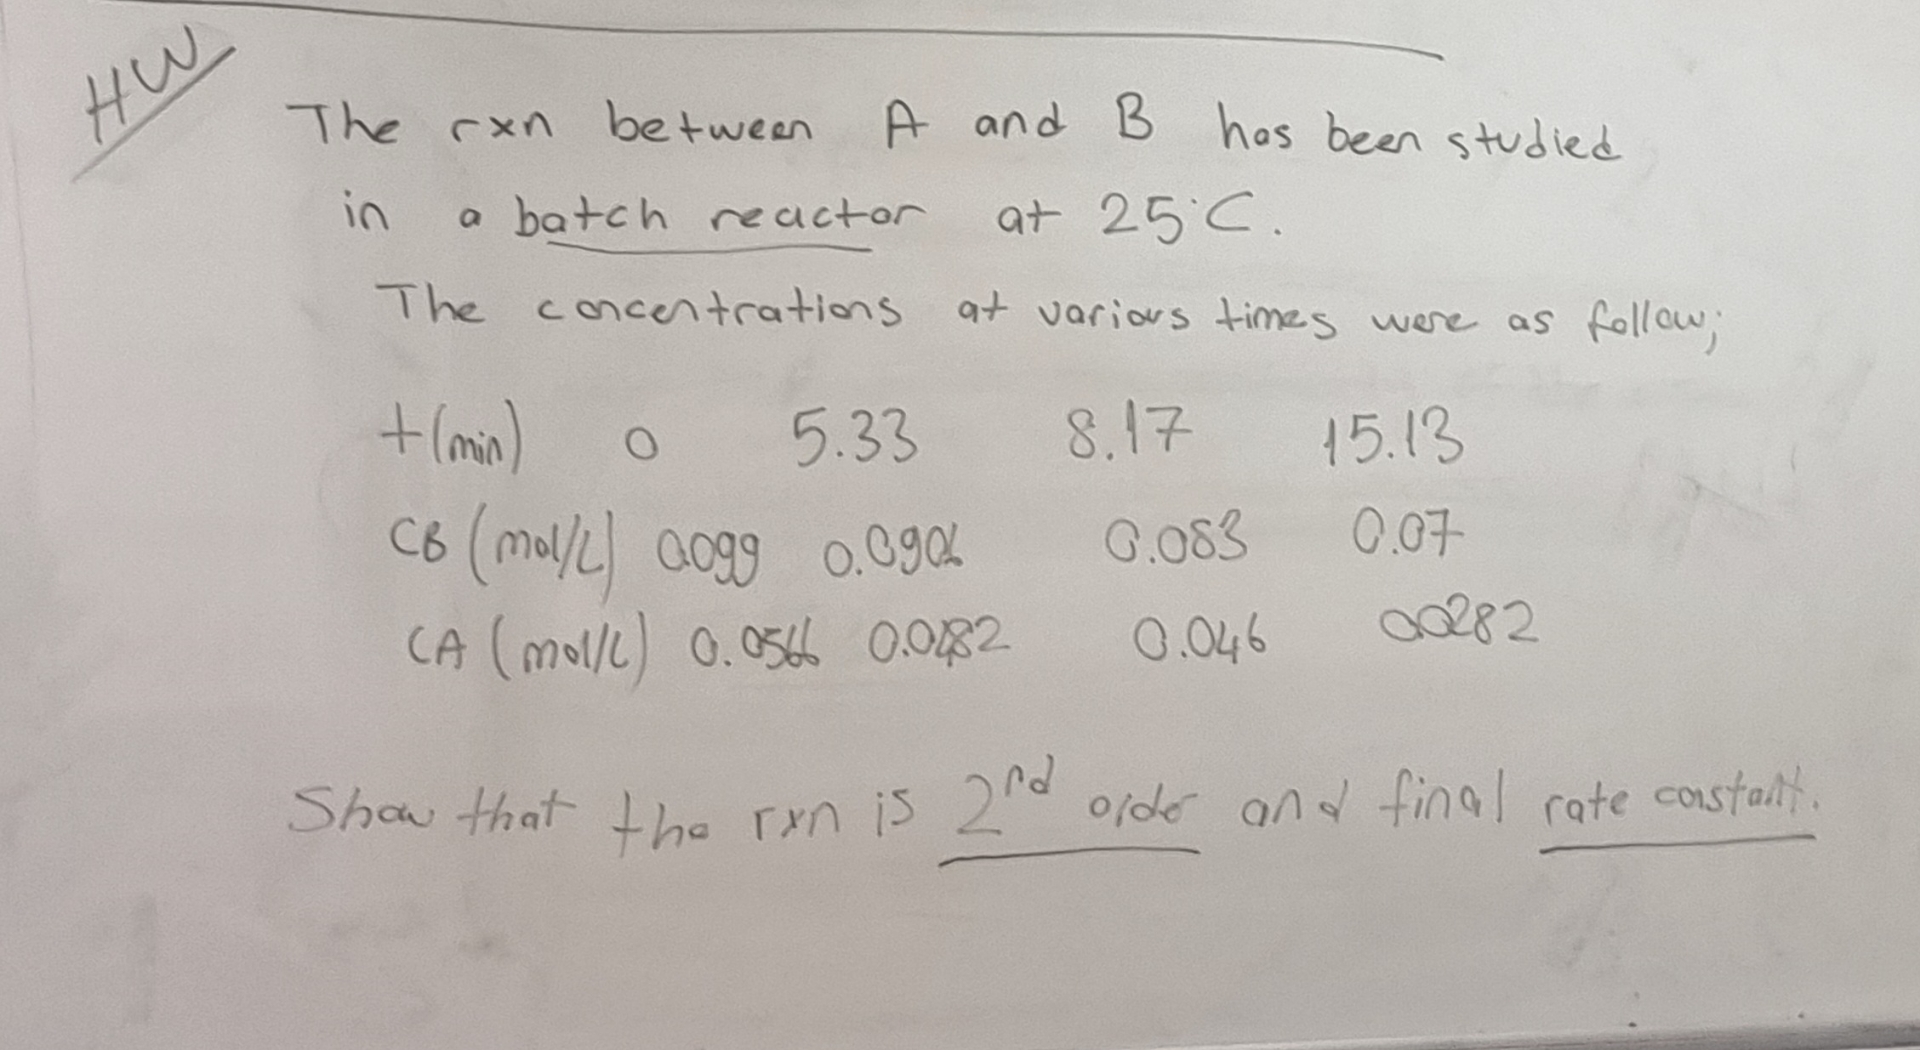 HW
The rxn between A and B has been studied
in a batch reactor at 25°C.
The concentrations at various times were as follow;
t(min) 0 5.33 8.17 15.13
CB (mol/L) 0.099 0.0906 0.083 0.07
CA (mol/L) 0.0566 0.0482 0.046 0.0282
Show that the rxn is 2nd order and final rate constant.